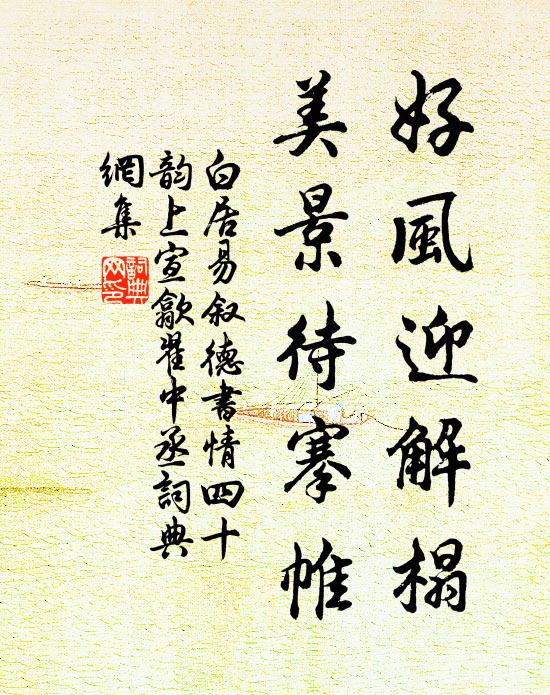 好風迎解榻
美景待搴帷
白居易叙德書情四十
韵上宣歙翟中丞詞典
網集
詞典
网印